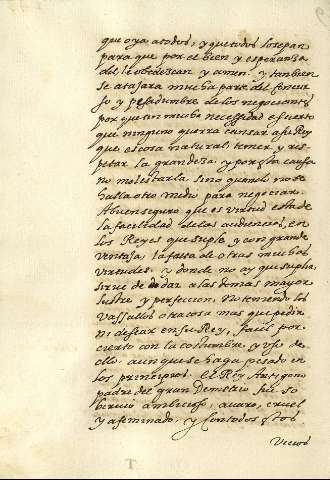 que oya a todos, y que todos lo sepan
para que por el bien y esperanza
del le obedezcan y amen: y tanbien
se atajara mucha parte del concur
so y pesadumbre de los negociantes
por que sin mucha necessidad es cierto
que ninguno querra cansar a su Rey
que es cosa natural temer y res-
petar la grandeza y por esta causa
no molestarla sino quando no se
halla otro medio para negociar.
Abuen seguro que es virtud esta de
la facilidad de las audiencias, en
los Reyes que suple, y con grande
ventaja, la falta de otras muchas
virtudes, y donde no ay que suplir
sirve de dar a las demas mayor
lustre y perfeccion. No teniendo los
Vassallos otra cosa mas que pedir
ni desear en su Rey, facil por
cierto con la costumbre y uso de
ello, aunque se haga pesado en
los principios. el Rey Antigono
padre del gran Demetrio fue so
bervio ambicioso, avaro, cruel
y afeminado, y con todos estos
Vicios
T